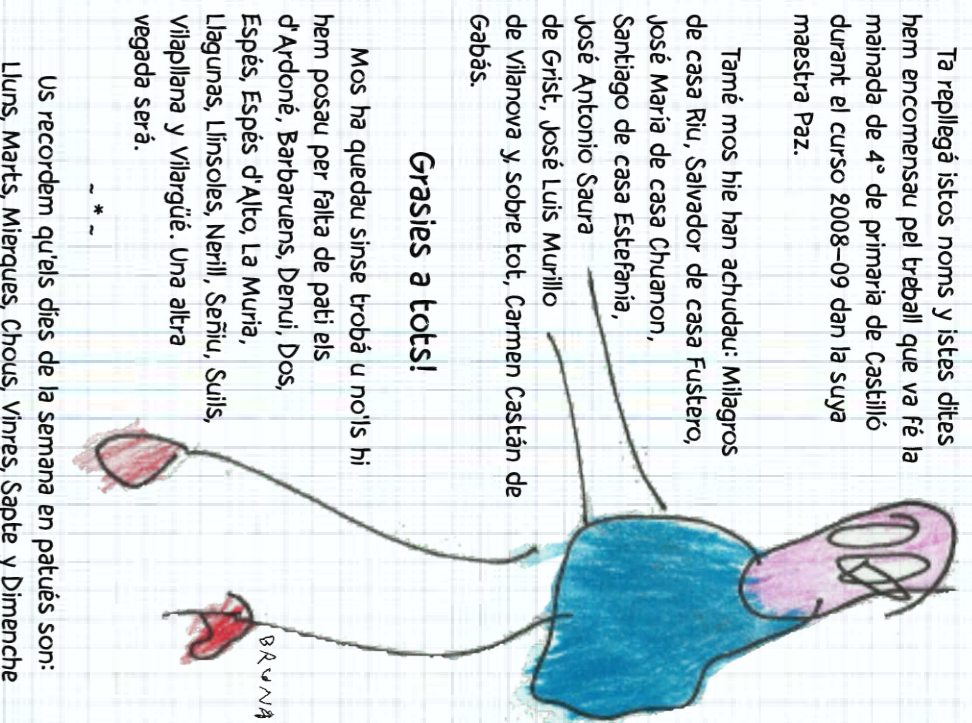 Ta repllegá istos noms y istes dites
hem encomensau pel treball que va fé la
mainada de 4º de primaria de Castilló
durant el curso 2008–09 dan la suya
maestra Paz.
Tamé mos hie han achudau: Milagros
de casa Riu, Salvador de casa Fustero,
José María de casa Chuanon,
Santiago de casa Estefanía,
José Antonio Saura
de Grist, José Luis Murillo
de Vilanova y, sobre tot, Carmen Castán de
Gabás.
Grasies a tots!
Mos ha quedau sinse trobá u no'ls hi
hem posau per falta de pati els
d'Ardoné, Barbaruens, Denui, Dos,
Espés, Espés d'Alto, La Muria,
Llagunas, Llinsoles, Nerill, Señiu, Suils,
Vilapllana y Vilargüé. Una altra
vegada será.
~ * ~
Us recordem qu'els dies de la semana en patués son:
Lluns, Marts, Mierques, Chous, Vinres, Sapte y Dimenche
BRUNA